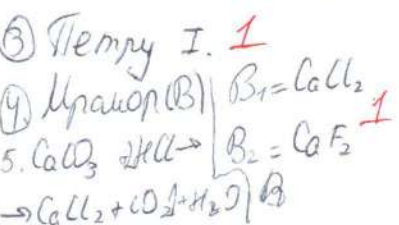 ③ Петру I. 1
④ Мрамор(B) | B₁ = CaCl₂ 1
5. CaCO₃ 2HCl → | B₂ = CaF₂
→ CaCl₂ + CO₂↑ + H₂O | B